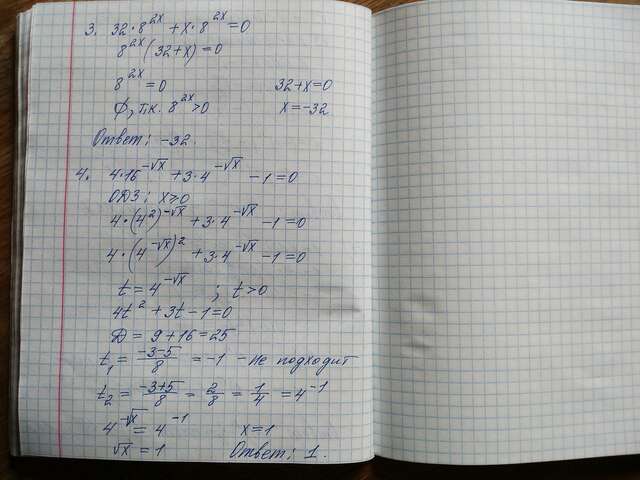 3. 32·8^{2x} + x·8^{2x} = 0
8^{2x}(32+x) = 0
8^{2x} = 0 32+x=0
Ø, т.к. 8^{2x}>0 x=-32
Ответ: -32.
4. 4·16^{-√x} + 3·4^{-√x} - 1 = 0
ОДЗ: x≥0
4·(4²)^{-√x} + 3·4^{-√x} - 1 = 0
4·(4^{-√x})² + 3·4^{-√x} - 1 = 0
t = 4^{-√x} ; t>0
4t² + 3t - 1 = 0
D = 9 + 16 = 25
t₁ = (-3-5)/8 = -1 - не подходит
t₂ = (-3+5)/8 = 2/8 = 1/4 = 4^{-1}
4^{-√x} = 4^{-1} x=1
√x = 1 Ответ: 1.